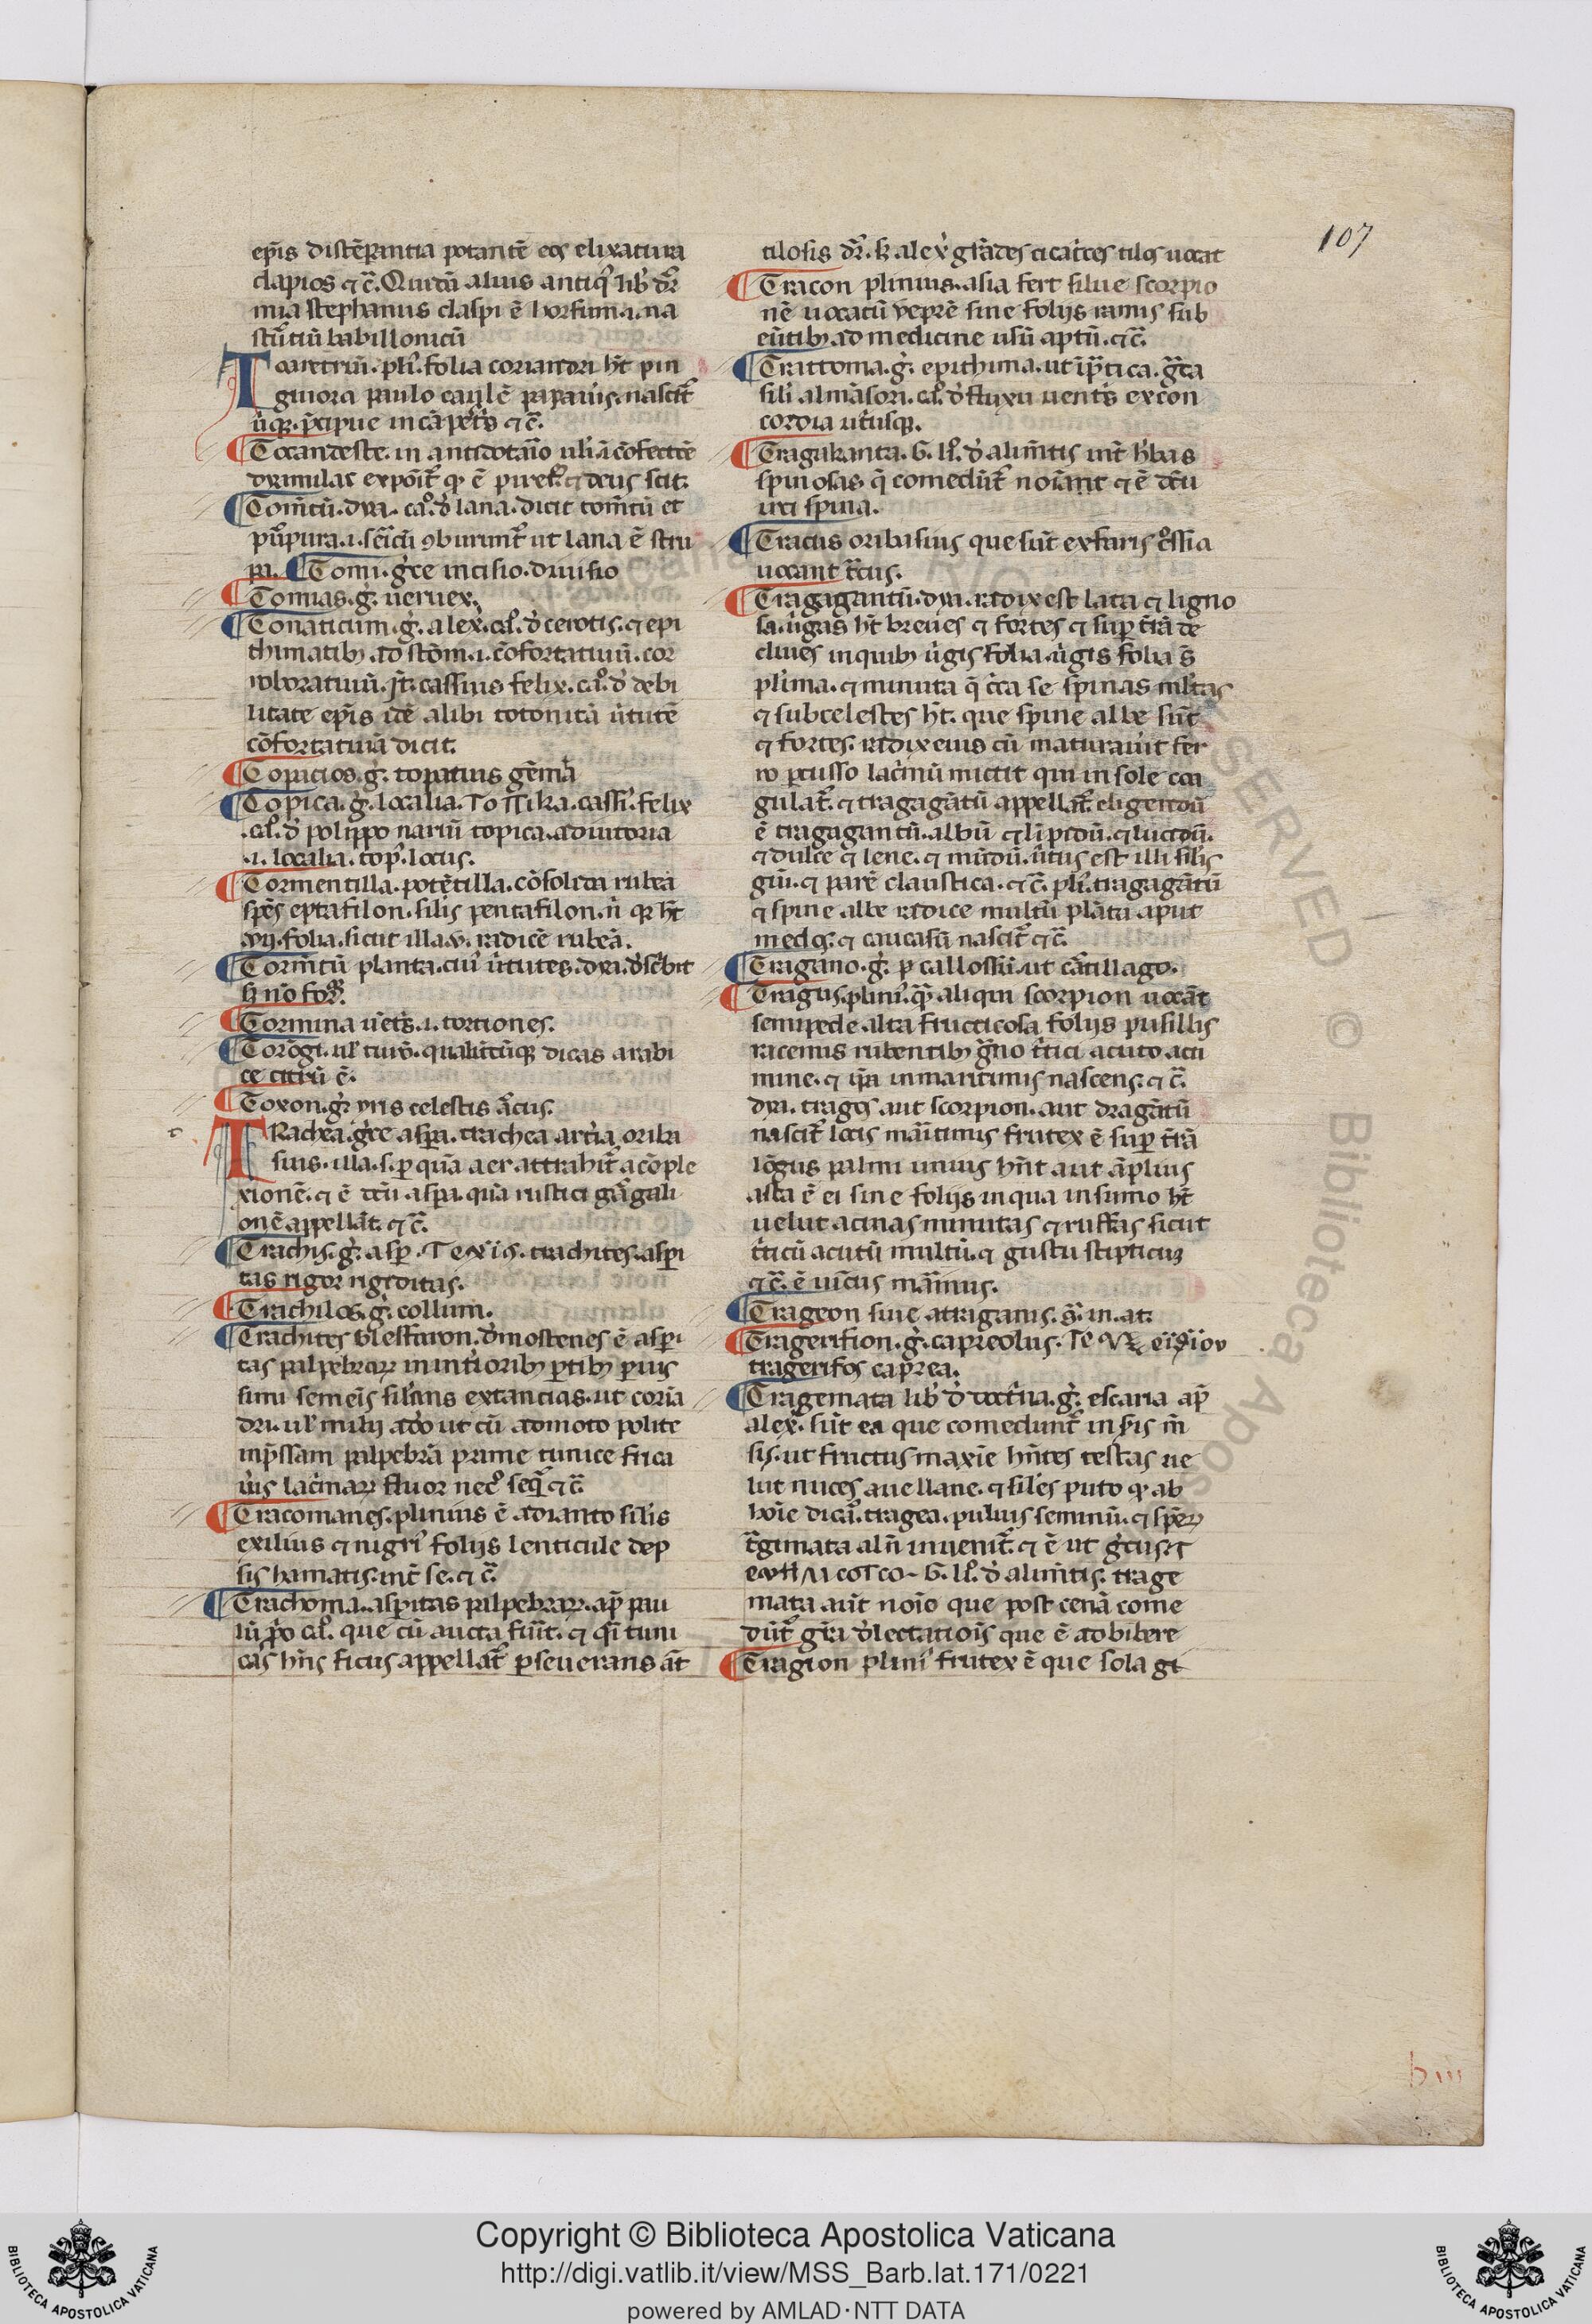 107
ep̄is distēp̄antia potantē eos elixatura
clapios ⁊ c̄. Quedā aliuis antiq̄ lib̾ dr̄
mia stephanus claspi ē horfum .i. na
sturtiū babillonicū
Toaretrū. pli̾. folia coriandri ht̄ pin
guiora paulo caulē papaue̾is. nascit̾
ubiq̾. p̄cipue in cāpet̾s ⁊ c̄.
¶ Tocandeste. in antidotaio ul̾i i cōfectōe
dyamilas expōit̾ qḥ ē piret̾. ⁊ deus scit.
¶ Tom̄tū. dya. ca̾. d̾ lana. dicit tom̄tū et
pu̾pura .i. sciciū ɔburunt̾ ut lana ē stru
pa. ¶ Tomi. g̾ce incisio. diuisio
¶ Tomias. g̾. ueruex.
¶ Tonaticum. g̾. alex. ca̾. d̾ cerotis. ⁊ epi
thimatib; ad stōm .i. cōfortatiuū. cor
roboratiuū. It̄. cassius felix. ca̾. d̾ debi
litate ep̄is idē alibi totonicā u̾tutē
cōfortatiuā dicit.
¶ Topacios. g̾. topatius gēma
¶ Topica. g̾. localia. ΤοΠika. cassi̾. felix
.ca̾. d̾ polippo nariū topica. adiutoria
.i. localia. top̾. locus.
¶ Tormentilla. potētilla. cōsolida rubea
spēs eptafilon. silis pentafilon. n̄ q̾ ht̄
.vij. folia. sicut illa .v. radicē rubeā.
¶ Torm̄tū planta. cui̾ u̾tutes. dya. d̾sc̾bit
h̾ nō for̾.
¶ Tormina uēt̾s .i. tortiones.
¶ Torōgi. ul̾ turō. qualit̾cūq; dicas arabi
ce citrū ē.
¶ Toxon. g̾. yris celestis a̾cus.
TRachea. g̾ce aspa. trachea art̾ia oriba
sius. illa .s. p quā aer attrahit̾ a cōple
xionē. ⁊ ē dcū aspa. quā rustici ga̾gali
onē appellāt. ⁊ c̄.
¶ Trachis. g̾. asp. Τ ϵχis. trachites. aspi
tas rigor rigiditas.
¶ Trachilos. g̾. collum.
¶ Trachites blesfaron. d̾mostenes ē aspi
tas palpebrarꝝ in int̾ioribꝫ ptibꝫ p̄uis
simi semēis sil̾ans extancias. ut coriā
dri. ul̾ milij adeo ut cū admoto polite
inp̄ssam palpebrā p̄ime tunice frica
u̾is lac̾marꝝ fluor nec̾o seq̾ ⁊ c̄.
¶ Tracomanes. plinius ē adianto silis
exilius ⁊ nigri̾ folijs lenticule dep
sis hamatis. int̾ se. ⁊ c̄.
¶ Trachoma. aspitas palpebrarꝝ. ap̄ pau
lū p̄o ca̾. que cū aucta fiūt. ⁊ q̄i tuni
cas hn̄s ficus appellat̾ pseuerans āt
tilosis dr̄. s; alex̾ gra̾des cicat̾ces tilos uocat
¶ Tracon plinius. asia fert silue scorpio
nē uocatū ueprē sine folijs ramis rub
ēntibꝫ ad medicine usū aptū. ⁊ c̄.
¶ Trattoma. g̾. epithima. ut ip̄tica. g̾ta
fili̾ almāsori. ca̾. d̾ fluxu uent̾s ex con
cordia ut̾usq;.
¶ Tragakanta. G. li̾. d̾ alim̄tis int̾ h̾bas
spinosas. q̄ comedūt̾ noīant ⁊ ē dcū
yrci spina.
¶ Tractus oribasius que sūt ex faris c̾ssia
uocant t̾ctus.
¶ Tragagantū. dya. radix est lata ⁊ ligno
sa. u̾gas ht̄ breues ⁊ fortes ⁊ sup t̾rā de
cliues in quibꝫ u̾gis folia. u̾gis folia s̄
plima. ⁊ minuta q̄ c̾ca se spinas m̾ltas
⁊ subcelestes ht̄. que spine albe sūt
⁊ fortes. radix eius cū maturau̾it fer
ro pcusso lac̾mū mittit qui in sole coa
gulat̾. ⁊ tragagātū appellat̾. eligendū
ē tragagantū. albū ⁊ limpidū. ⁊ lucidū.
⁊ dulce ⁊ lene. ⁊ mūdū. u̾tus est illi sil̾is
gūi. ⁊ parē claustica. ⁊ c̄. pli̾. tragagātū
⁊ spine albe radice multū plāta aput
medos. ⁊ caucasū nascit̾ ⁊ c̄.
¶ Tragano. g̾. p callossū. ut ca̾tillago.
¶ Tragus. plini̾. quā aliqui scorpion uocāt
semipede alta fructicosa folijs pusillis
racemis rubentibꝫ g̾no t̾tici acuto acu
mine. ⁊ ip̄a in maritimis nascens. ⁊ c̄.
dya. tragos aut scorpion. aut dragātū
nascit̾ locis ma̾itimis frutex ē sup t̾rā
lōgus palmi unius hn̄t aut āplius
asta ē ei sine folijs in qua in sūmo ht̄
uelut acinas minutas ⁊ ruffas sicut
t̾ticū acutū multū. ⁊ gustu stipticuꝫ
⁊ c̄. ē uictus ma̾imus.
¶ Trageon siue atriganis. g̾. in .at.
¶ Tragerifion. g̾. capreolus.
tragerifos caprea.
¶ Tragemata lib̾ d̾ doct̾ina. g̾. escaria ap̄
alex̾. sūt ea que comedunt̾ in s̾is m̄
sis. ut fructus maxīe hn̄tes testas ue
lut nuces auellane. ⁊ siles puto qḥ ab
hoīe dica̾. tragea. puluis seminū. ⁊ spēꝝ
t̾gimata al̾n inuenit̾. ⁊ ē ut g̾cus.
G. li̾. d̾ alim̄tis. trage
mata aūt noīo que post cenā come
dūt̾ g̾rā d̾lectatiōis que ē ad bibere
¶ Tragion plini̾ frutex ē que sola gi
b iii
RESERVED © Biblioteca Apos
Copyright © Biblioteca Apostolica Vaticana
http://digi.vatlib.it/view/MSS_Barb.lat.171/0221
powered by AMLAD·NTT DATA
BIBLIOTECA APOSTOLICA VATICANA
BIBLIOTECA APOSTOLICA VATICANA